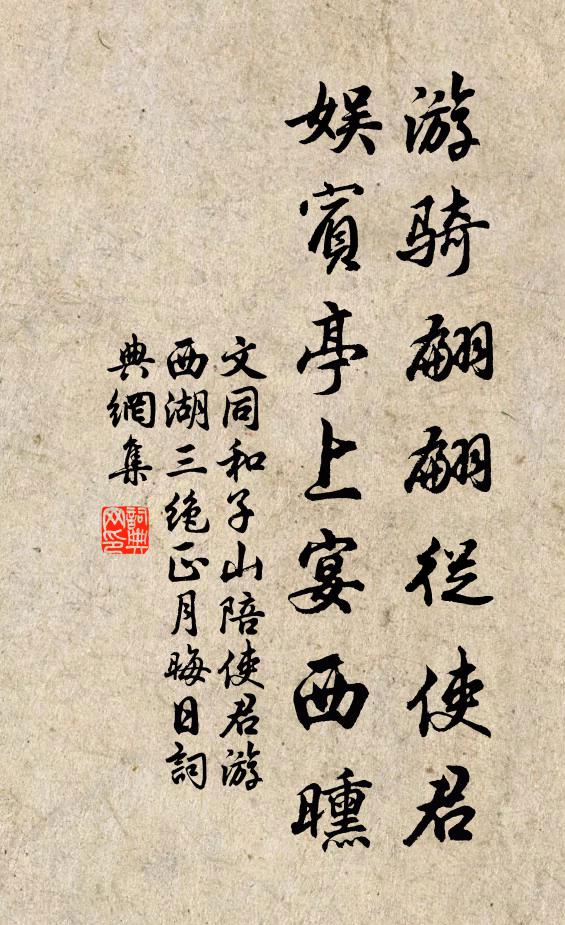 游骑翩翩從使君
娱賓亭上宴西曛
文同和子山陪使君游
西湖三绝正月晦日詞
典網集
詞典
网印